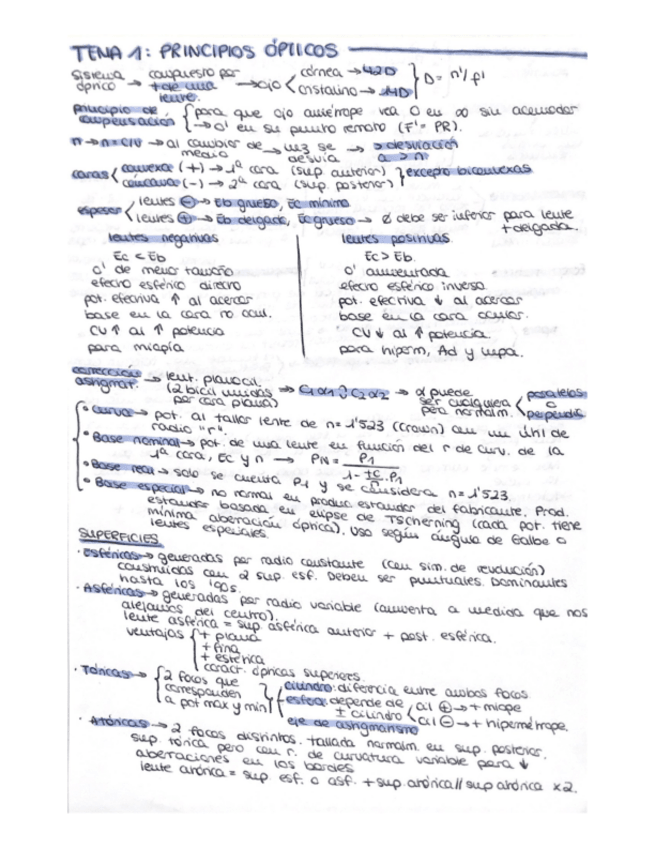 TEMA 1: PRINCIPIOS ÓPTICOS
sistema óptico → compuesto por + de una lente. → ojo < córnea → 42D cristalino → 19D } D = n'/f'
principio de compensación { para que ojo amétrope vea O en ∞ sin acomodar → o' en su punto remoto (F' = PR).
n → n = c/v → al cambiar de medio → luz se desvía → > desviación a > n.
caras < convexa (+) → 1ª cara (sup anterior) cóncava (-) → 2ª cara (sup. posterior) } excepto biconvexas
espesor < lentes ⊖ → Eb grueso, Ec mínimo
lentes ⊕ → Eb delgado, Ec grueso → Ø debe ser inferior para lente + delgada.
lentes negativas
Ec < Eb
o' de menor tamaño
efecto esférico directo
pot. efectiva ↑ al acercar
base en la cara no ocul.
CV ↑ al ↑ potencia
para miopía
lentes positivas
Ec > Eb.
o' aumentada
efecto esférico inverso
pot. efectiva ↓ al acercar
base en la cara ocular.
CV ↓ al ↑ potencia.
para hiperm, Ad y lupa.
corrección astigmat. → lent. planocil. (2 bicil unidas por cara plana) → C1α1 C2α2 → α puede ser cualquiera pero normalm. < paralelos o perpendic.
• Curva → pot. al tallar lente de n = 1'523 (crown) con un único radio "r".
• Base nominal → pot. de una lente en función del r de curv. de la 1ª cara, Ec y n → PN = P1 / 1 - tc/n · P1
• Base real → solo se cuenta P1 y se considera n = 1'523.
• Base especial → no normal en produc. estandar del fabricante. Prod. estandar basada en elipse de Tscherning (cada pot. tiene mínima aberración óptica). Uso según ángulo de Galbe o lentes especiales.
SUPERFICIES
· Esféricas → generadas por radio constante (con sim. de revolución) construidas con 2 sup. esf. Deben ser puntuales. Dominantes hasta los '90s.
· Asféricas → generadas por radio variable (aumenta a medida que nos alejamos del centro).
lente asférica = sup asférica anterior + post. esférica.
ventajas { + plana
+ fina
+ estética
caract. ópticas superiores.
· Tóricas → { 2 focos que corresponden a pot max y min } { cilindro: diferencia entre ambos focos
esfera: depende de ± cilindro < cil ⊕ → + miope cil ⊖ → + hipermétrope.
eje de astigmatismo
· Atóricas → 2 focos distintos. tallada normalm. en sup. posterior.
sup. tórica pero con r. de curvatura variable para ↓ aberraciones en los bordes
lente atórica = sup esf. o asf. + sup. atórica // sup atórica x2.